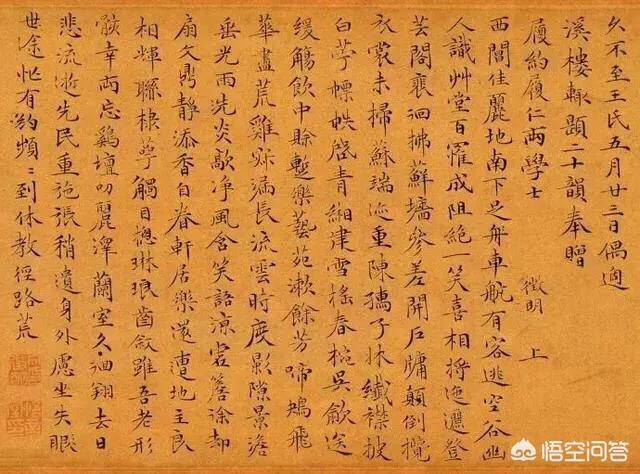 久不至王氏五月廿三日偶過
溪樓輒題二十韻奉贈
履約履仁兩學士
徵明 上
西閶佳麗地南下足舟車航有客逃空谷幽
人識艸堂百罹成阻絕一笑喜相將迤邐登
芸閣襄徊拂蘚墻參差開戶牖顛倒攬
衣裳未掃蘇端迹重陳孺子牀纖襟披
白苧幖帙啓青緗津雪搖春椀吳歈送
緩觴飲中賒蹔樂藝苑漱餘芳啼鴂飛
華盡荒雞殊漏長流雲時度影隙景澹
垂光雨洗炎歊淨風含笑語涼宕簷徐却
扇文鼎靜添香自眷軒居樂還遭地主良
相輝聯棣萼觸目總琳琅齒敘雖吾老形
骸幸兩忘鷄壇叨麗澤蘭室久徊翔去日
悲流逝先民重弛張稍遺身外慮坐失眼
世途忙有約頻〻到休教徑路荒
悟空问答